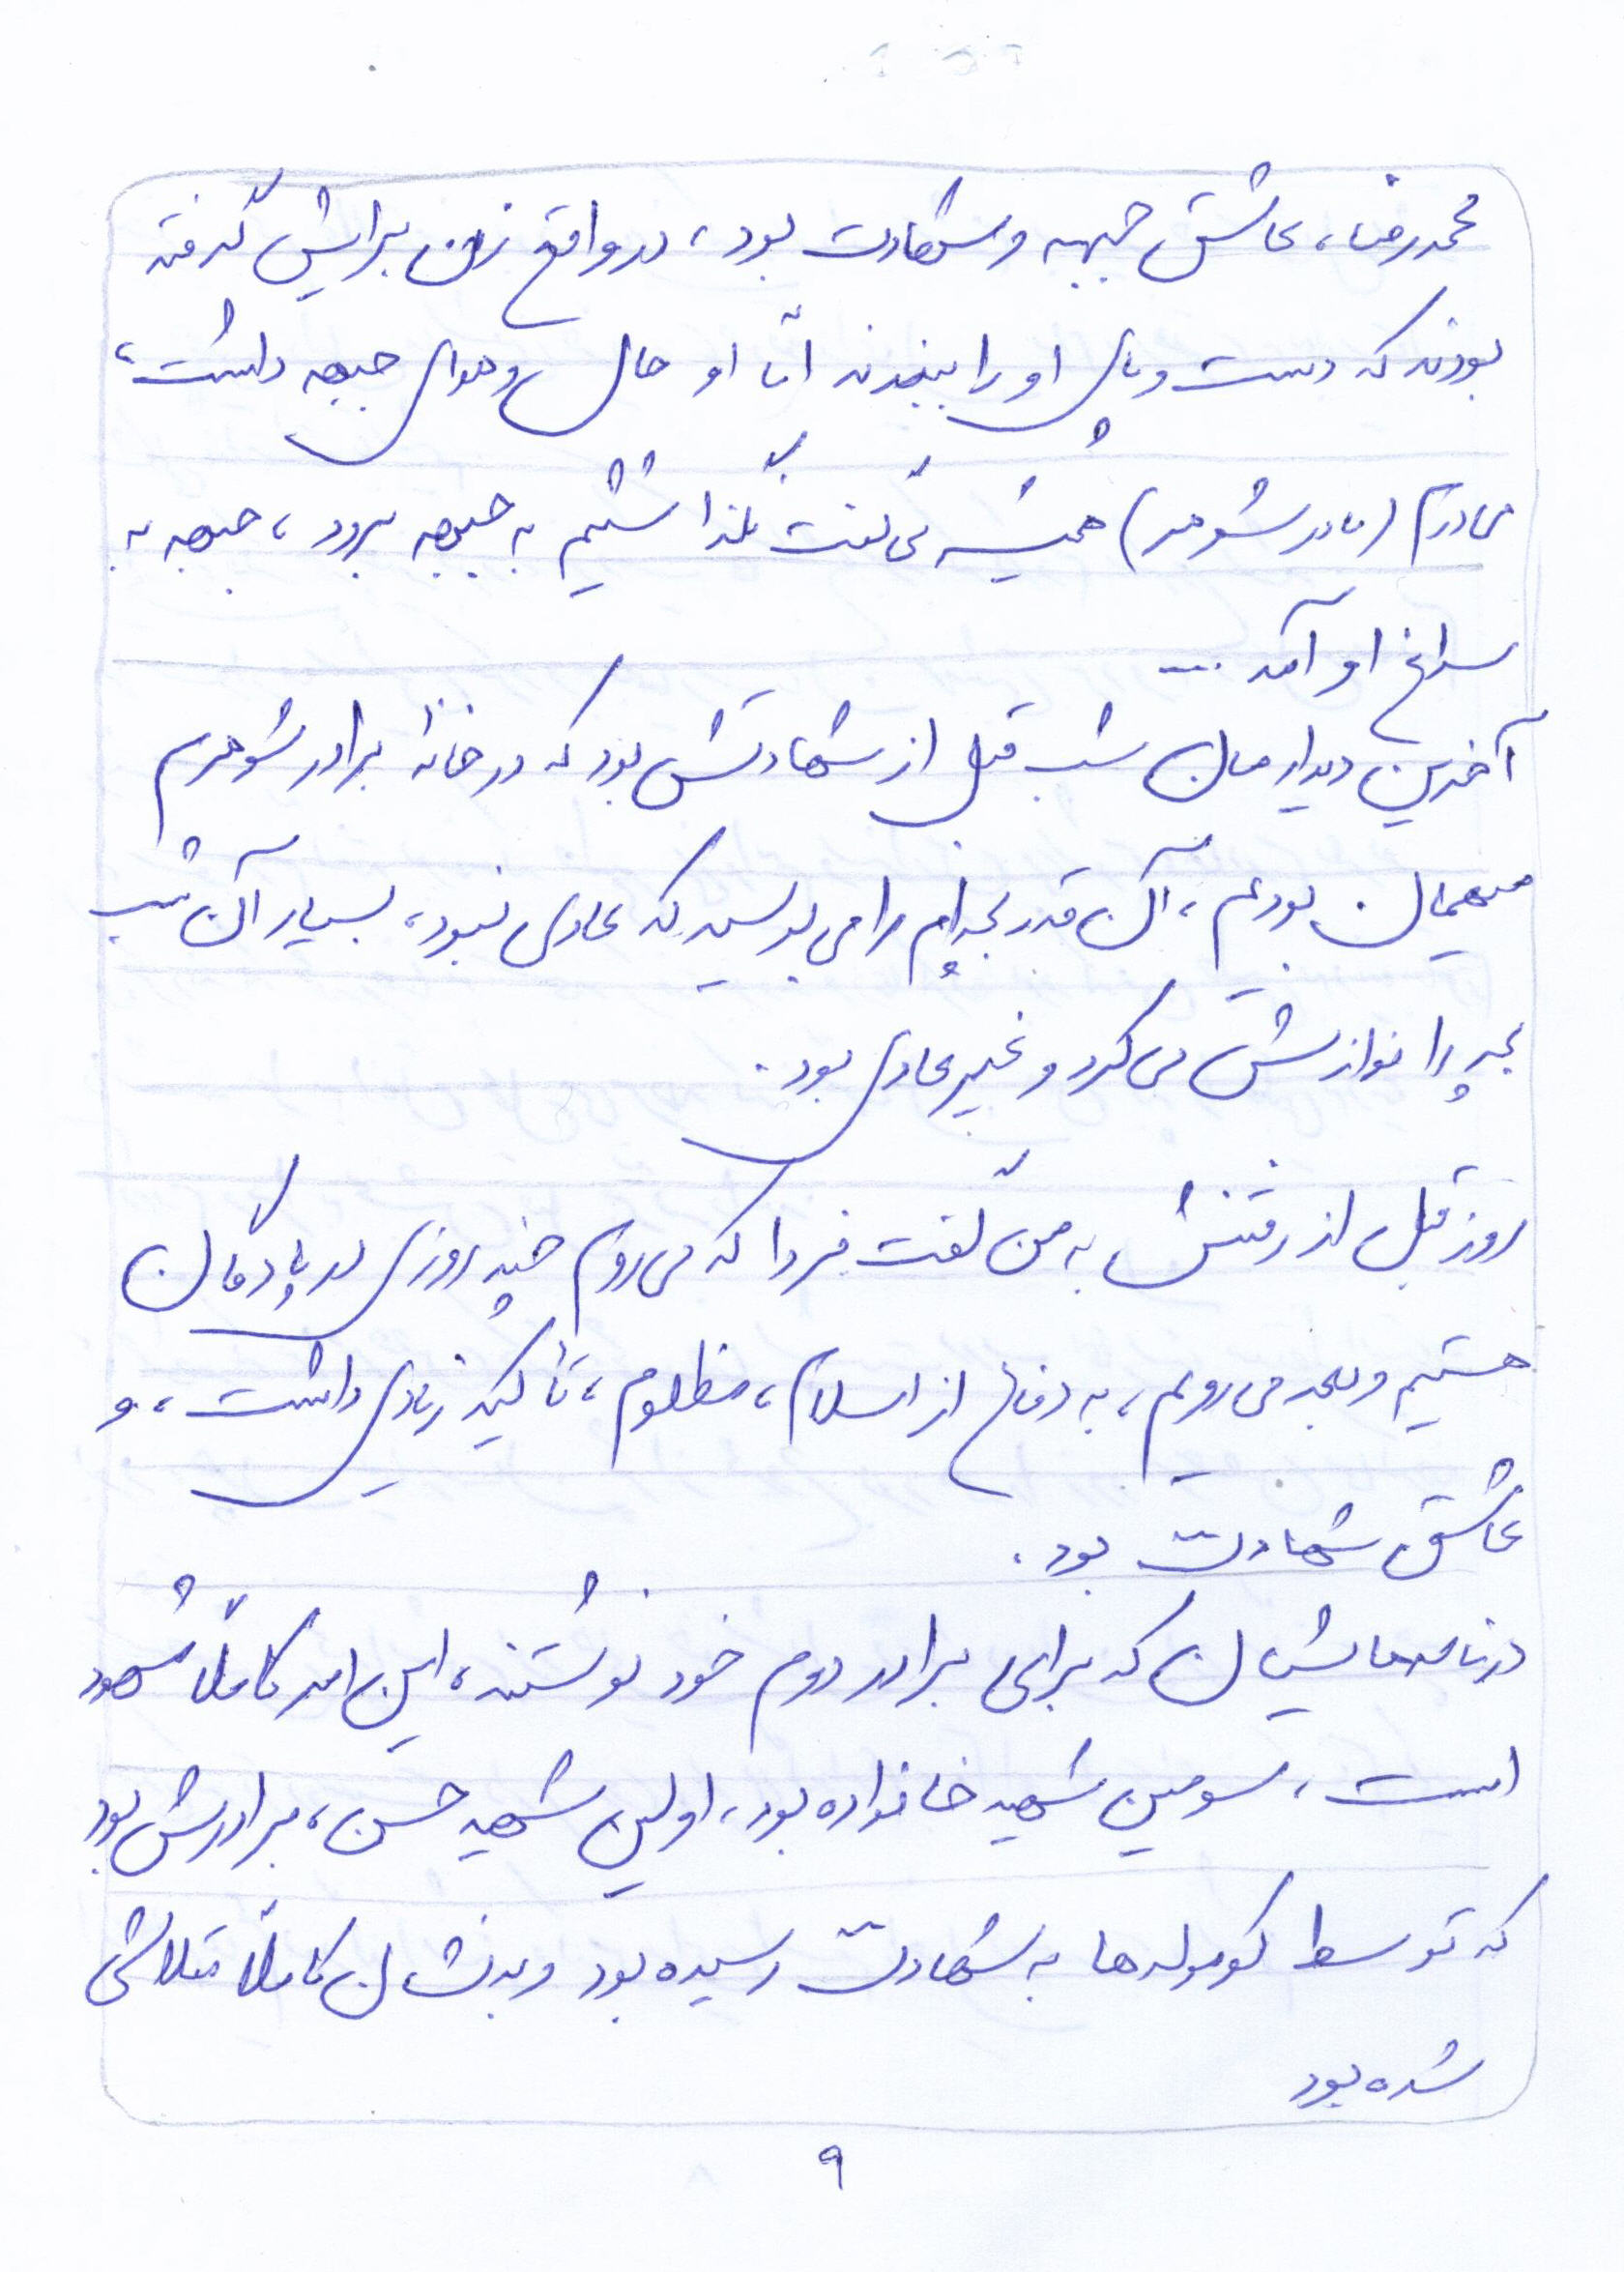 محمدرضا، عاشق جبهه و شهادت بود، در واقع زن برایش گرفته
بودند که دست و پای او را ببندند اما او حال و هوای جبهه داشت،
مادرم (مادر شوهر) همیشه می‌گفت نگذاشتیم به جبهه برود، جبهه به
سراغ او آمد ...
آخرین دیدارمان شب قبل از شهادتش بود که در خانهٔ برادر شوهرم
میهمان بودیم، آن قدر بچه‌ام را می‌بوسید که عادی نبود، بسیار آن شب
بچه را نوازش می‌کرد و غیرعادی بود.
روز قبل از رفتنش به من گفت فردا که می‌روم چند روزی در پادگان
هستیم و بعد می‌رویم، به دفاع از اسلام، مظلوم، تأکید زیادی داشت، و
عاشق شهادت بود.
در نامه‌هایشان که برای برادر دوم خود نوشتند، این امر کاملاً مشهود
است، سومین شهید خانواده بود، اولین شهید حسن، برادرش بود
که توسط کومله‌ها به شهادت رسیده بود و بدنشان کاملاً متلاشی
شده بود
۹